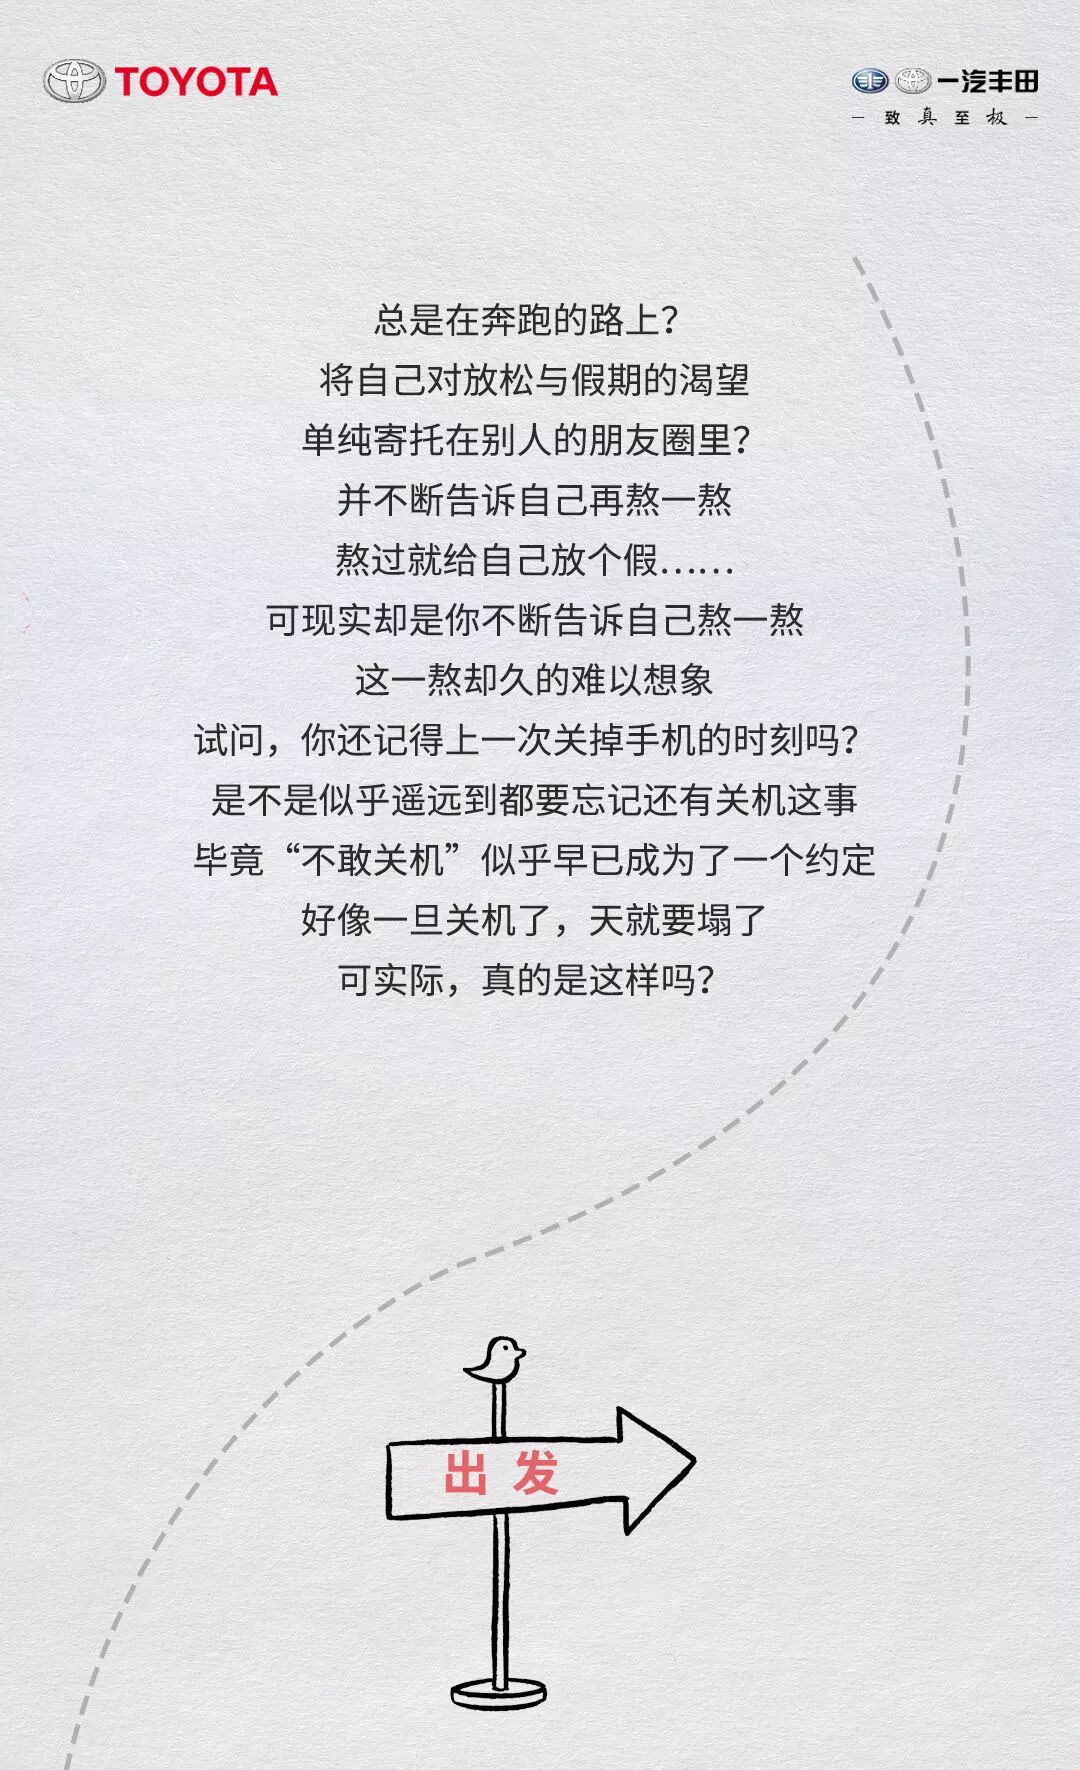 TOYOTA
一汽丰田
致真至极
总是在奔跑的路上？
将自己对放松与假期的渴望
单纯寄托在别人的朋友圈里？
并不断告诉自己再熬一熬
熬过就给自己放个假……
可现实却是你不断告诉自己熬一熬
这一熬却久的难以想象
试问，你还记得上一次关掉手机的时刻吗？
是不是似乎遥远到都要忘记还有关机这事
毕竟“不敢关机”似乎早已成为了一个约定
好像一旦关机了，天就要塌了
可实际，真的是这样吗？
出发